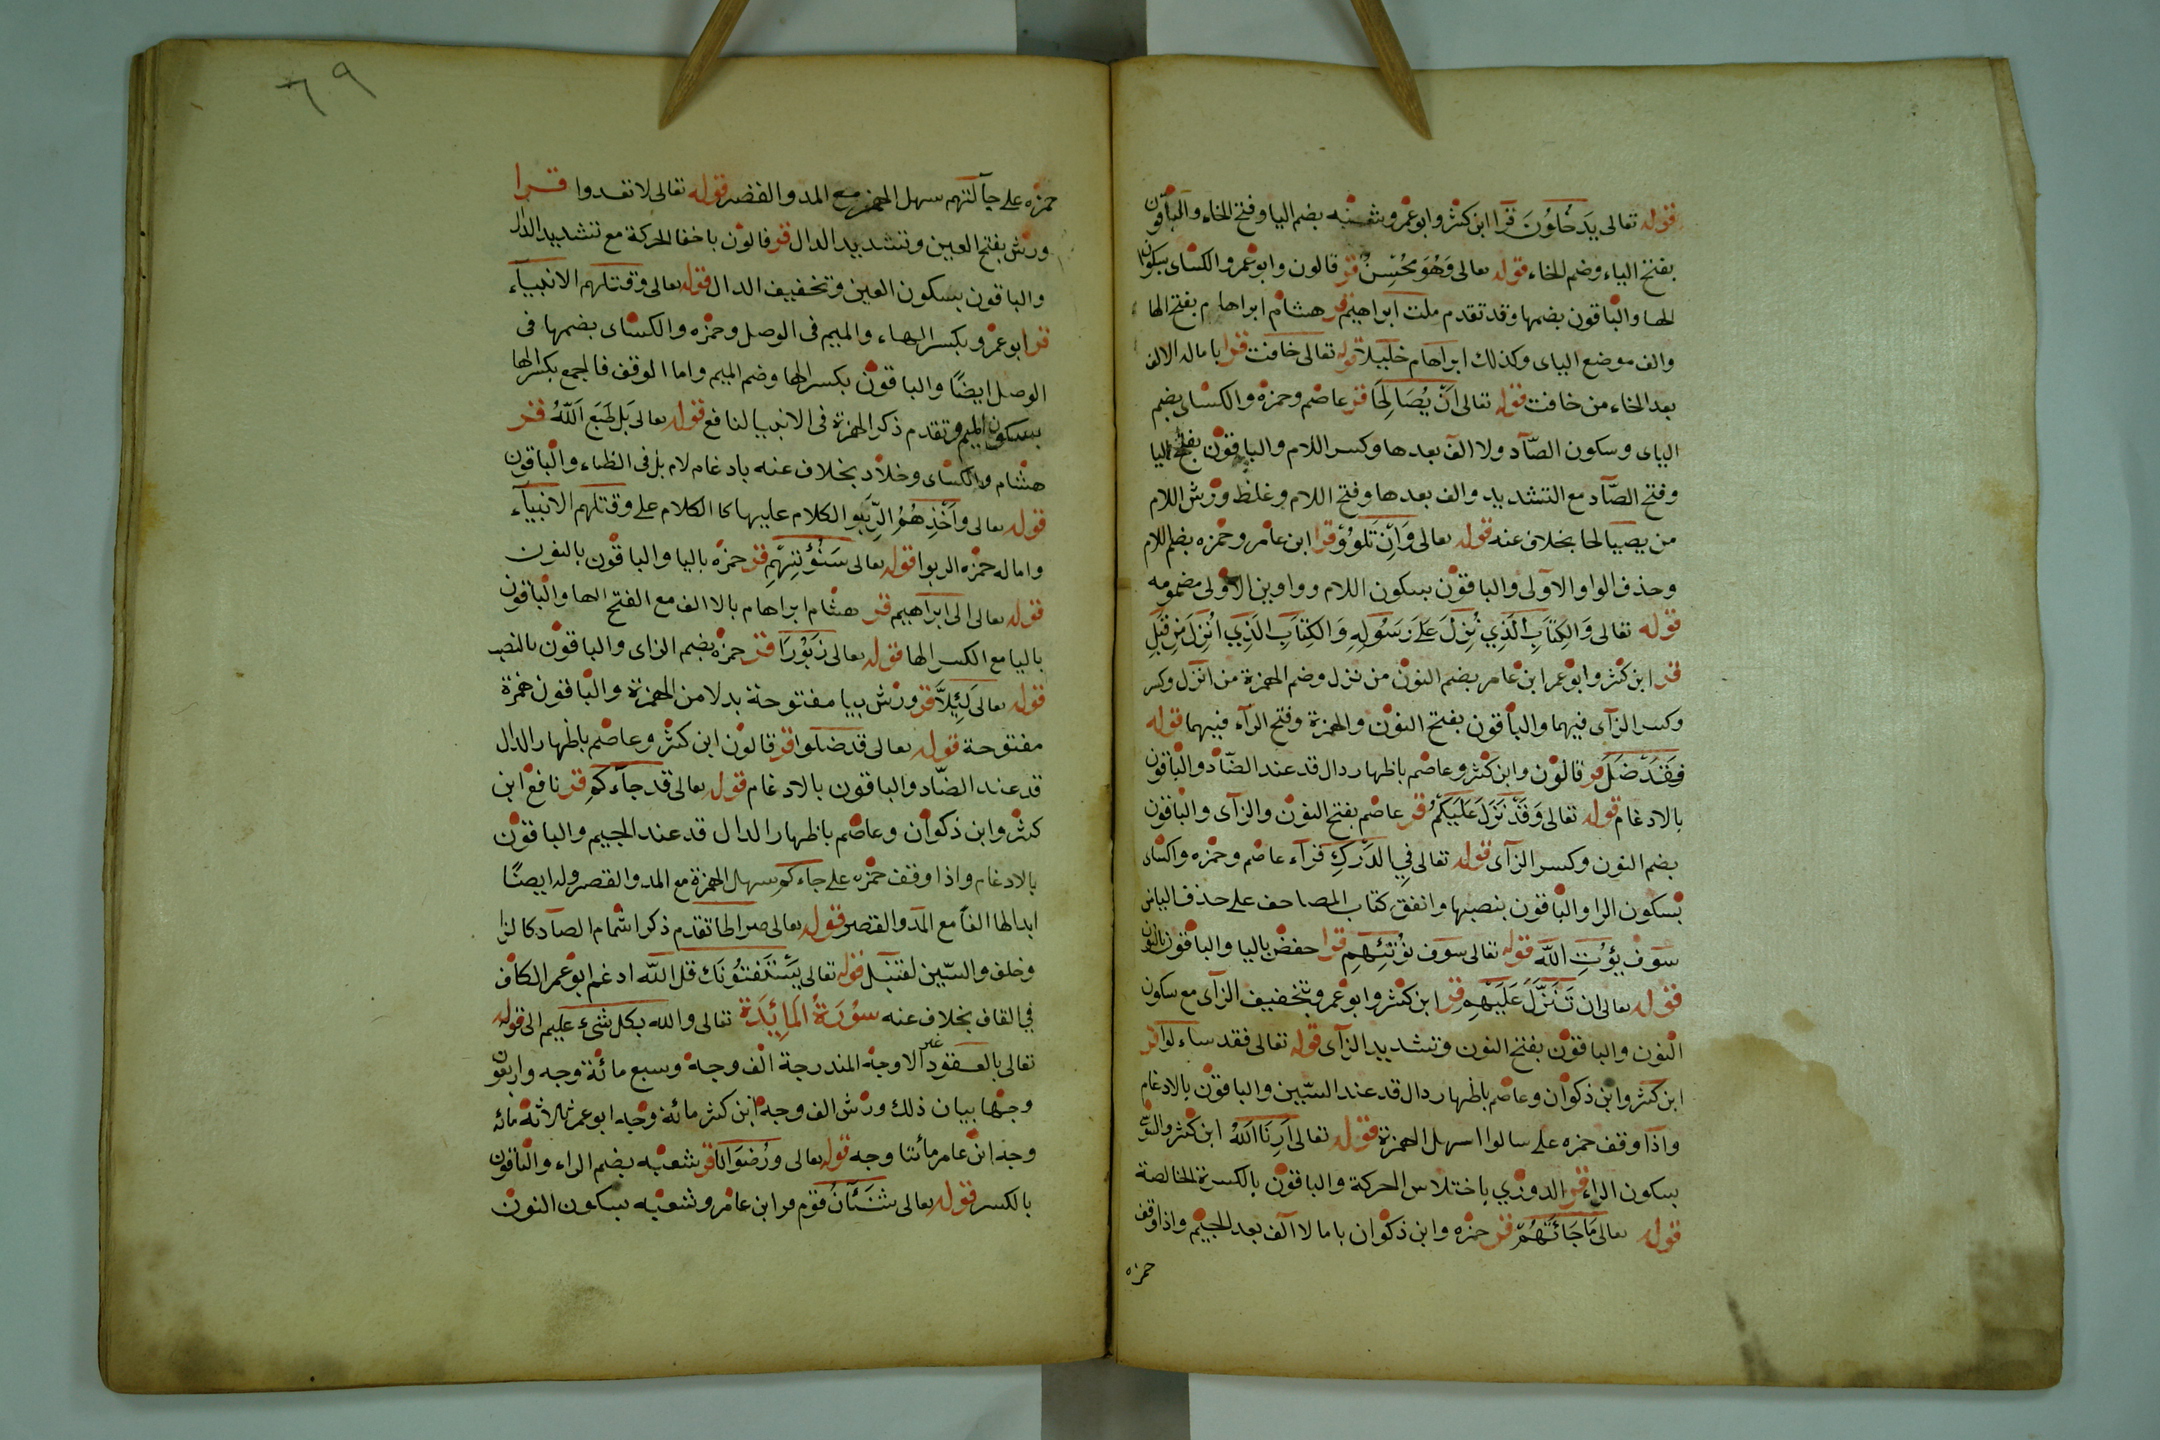 قوله تعالى يدخلون قرا ابن كثر وابو عمرو وشعبه بضم اليا وفتح الخاء والباقون
بفتح الياء وضم الخاء قوله تعالى وَهُوَ مُحْسِنٌ قر قالون وابو عمرو والكساى بسكون
الها والباقون بضمها وقد تقدم ملت ابراهيم قر هشام ابراهام بفتح الها
والف موضع الياى وكذلك ابراهام خليلا قوله تعالى خافت قرا بامالة الالف
بعد الخاء من خافت قوله تعالى اَنْ يُصَالِحَا قر عاصم وحمزه والكساى بضم
الياى وسكون الصّاد ولا الف بعدها وكسر اللام والباقون بفتح اليا
وفتح الصّاد مع التشديد والف بعدها وفتح اللام وغلظ ورش اللام
من يصالحا بخلاف عنه قوله تعالى وَاِنْ تَلْوُوْ قرا ابن عامر وحمزه بضم اللام
وحذف الواو الاولى والباقون بسكون اللام وواوين الاولى مضمومه
قوله تعالى وَالكِتَابِ الَّذِي نُزِلَ عَلَى رَسُولِهِ وَالكِتَابِ الَّذِي اُنْزِلَ مِن قَبْلِ
قر ابن كثر وابو عمر ابن عامر بضم النون من نزل وضم الهمزة من انزل وكسر
وكسر الزاى فيهما والباقون بفتح النون والهمزة وفتح الزاء فيهما قوله
فَقَدْ ضَلَّ قر قالون وابن كثر وعاصم باظهار دال قد عند الضّاد والباقون
بالادغام قوله تعالى وَقَدْ نَزَلَ عَلَيكُمْ قر عاصم بفتح النون والزاى والباقون
بضم النون وكسر الزاى قوله تعالى فِي الدَرْكِ قراء عاصم وحمزه واكساى
بسكون الرا والباقون بنصبها واتفق كتاب المصاحف على حذف اليا من
سَوف يؤتِ الله قوله تعالى سَوف نؤتيهِم قرا حفض باليا والباقون بالنون
قوله تعالى ان تَنَزَّلَ عَلَيْهِم قر ابن كثر وابو عمرو بتخفيف الزاى مع سكون
النون والباقون بفتح النون وتشديد الزاى قوله تعالى فقد ساءلوا قر
ابن كثر وابن ذكوان وعاصم باظهار دال قد عند السّين والباقون بالادغام
واذا وقف حمزه على سالوا سهل الهمزة قوله تعالى اَرِنَا اللهَ ابن كثر والسّوسى
بسكون الراء قر الدورى باختلاس الحركة والباقون بالكسرة الخالصة
قوله تعالى مَا جَائَتْهُمْ قر حمزه وابن ذكوان بامالا الف بعد الجيم واذا وقف
حمزه
٦٩
حمزه على جآئتهم سهل الهمز مع المد والقصر قوله تعالى لا تعدوا قرا
ورش بفتح العين وتشديد الدال قر قالون باخفا الحركة مع تشديد الدال
والباقون بسكون العين وتخفيف الدال قوله تعالى وقتلهم الانبياء
قرا ابو عمرو بكسر الهاء والميم فى الوصل وحمزه والكساى بضمها فى
الوصل ايضًا والباقون بكسر الها وضم الميم واما الوقف فالجمع بكسر الها
بسكون الميم وتقدم ذكر الهمزة فى الانبيا لنافع قوله تعالى بَل طَبَعَ اللهُ قر
هشام والكساى وخلاد بخلاف عنه بادغام لام بل فى الطاء والباقون
قوله تعالى وَاَخْذِهِمُ الرِّبَو الكلام عليها كا الكلام على وقتلهم الانبياء
واماله حمزه الربوا قوله تعالى سَنُؤتِيهِم قر حمزه باليا والباقون بالنون
قوله تعالى الى ابراهيم قر هشام ابراهام بالاالف مع الفتح الها والباقون
باليا مع الكسر الها قوله تعالى زَبُوْرَا قر حمزه بضم الزاى والباقون بالنصب
قوله تعالى لَئِلاَّ قر ورش بيا مفتوحة بدلا من الهمزة والباقون همزة
مفتوحة قوله تعالى قد ضلوا قر قالون ابن كثر وعاصم باظهار الدال
قد عند الضّاد والباقون بالادغام قوله تعالى قد جآءكم قر نافع ابن
كثر وابن ذكوان وعاصم باظهار الدال قد عند الجيم والباقون
بالادغام واذا وقف حمزه على جاءكم سهل الهمزة مع المد والقصر وله ايضًا
ابدالها الفا مع المد والقصر قوله تعالى صراطا تقدم ذكر اشمام الصاد كا لزا
وخلف والسّين لقنبل قوله تعالى يَسْتَفتُونَك قل الله ادغم ابو عمر الكاف
في القاف بخلاف عنه سُورَةُ المَائِدَة تعالى والله بكل شىء عليم الى قوله
تعالى بالعقود الاوجه المندرجة الف وجه وسبع مائة وجه واربعون
وجها بيان ذلك ورش الف وجه ابن كثر مائة وجه ابو عمر ثلاثة مائة
وجه ابن عامر مائتا وجه قوله تعالى ورُضوَانا قر شعبه بضم الراء والباقون
بالكسر قوله تعالى شَنَئَانُ قوم قر ابن عامر وشعبه بسكون النون